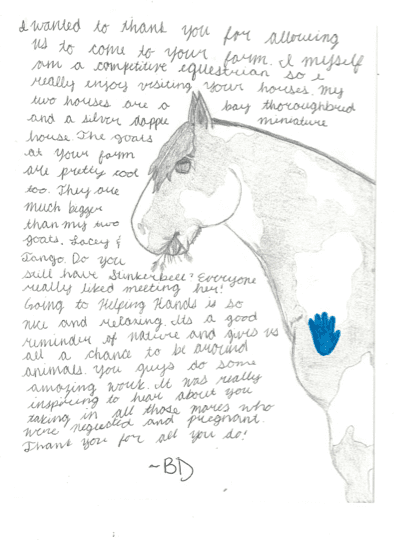 I wanted to thank you for allowing
us to come to your farm. I myself
am a competitive equestrian so i
really enjoy visiting your houses. My
two houses are a bay thoroughbred
and a silver dapple miniature
house. The goats
at your farm
are pretty cool
too. They are
much bigger
than my two
goats, Lacey &
Tango. Do you
still have Stinkerbell? Everyone
really liked meeting her!
Going to Helping Hands is so
nice and relaxing. Its a good
reminder of nature and gives us
all a chance to be around
animals. You guys do some
amazing work. It was really
inspiring to hear about you
taking in all those mares who
were neglected and pregnant.
Thank you for all you do!
~BD